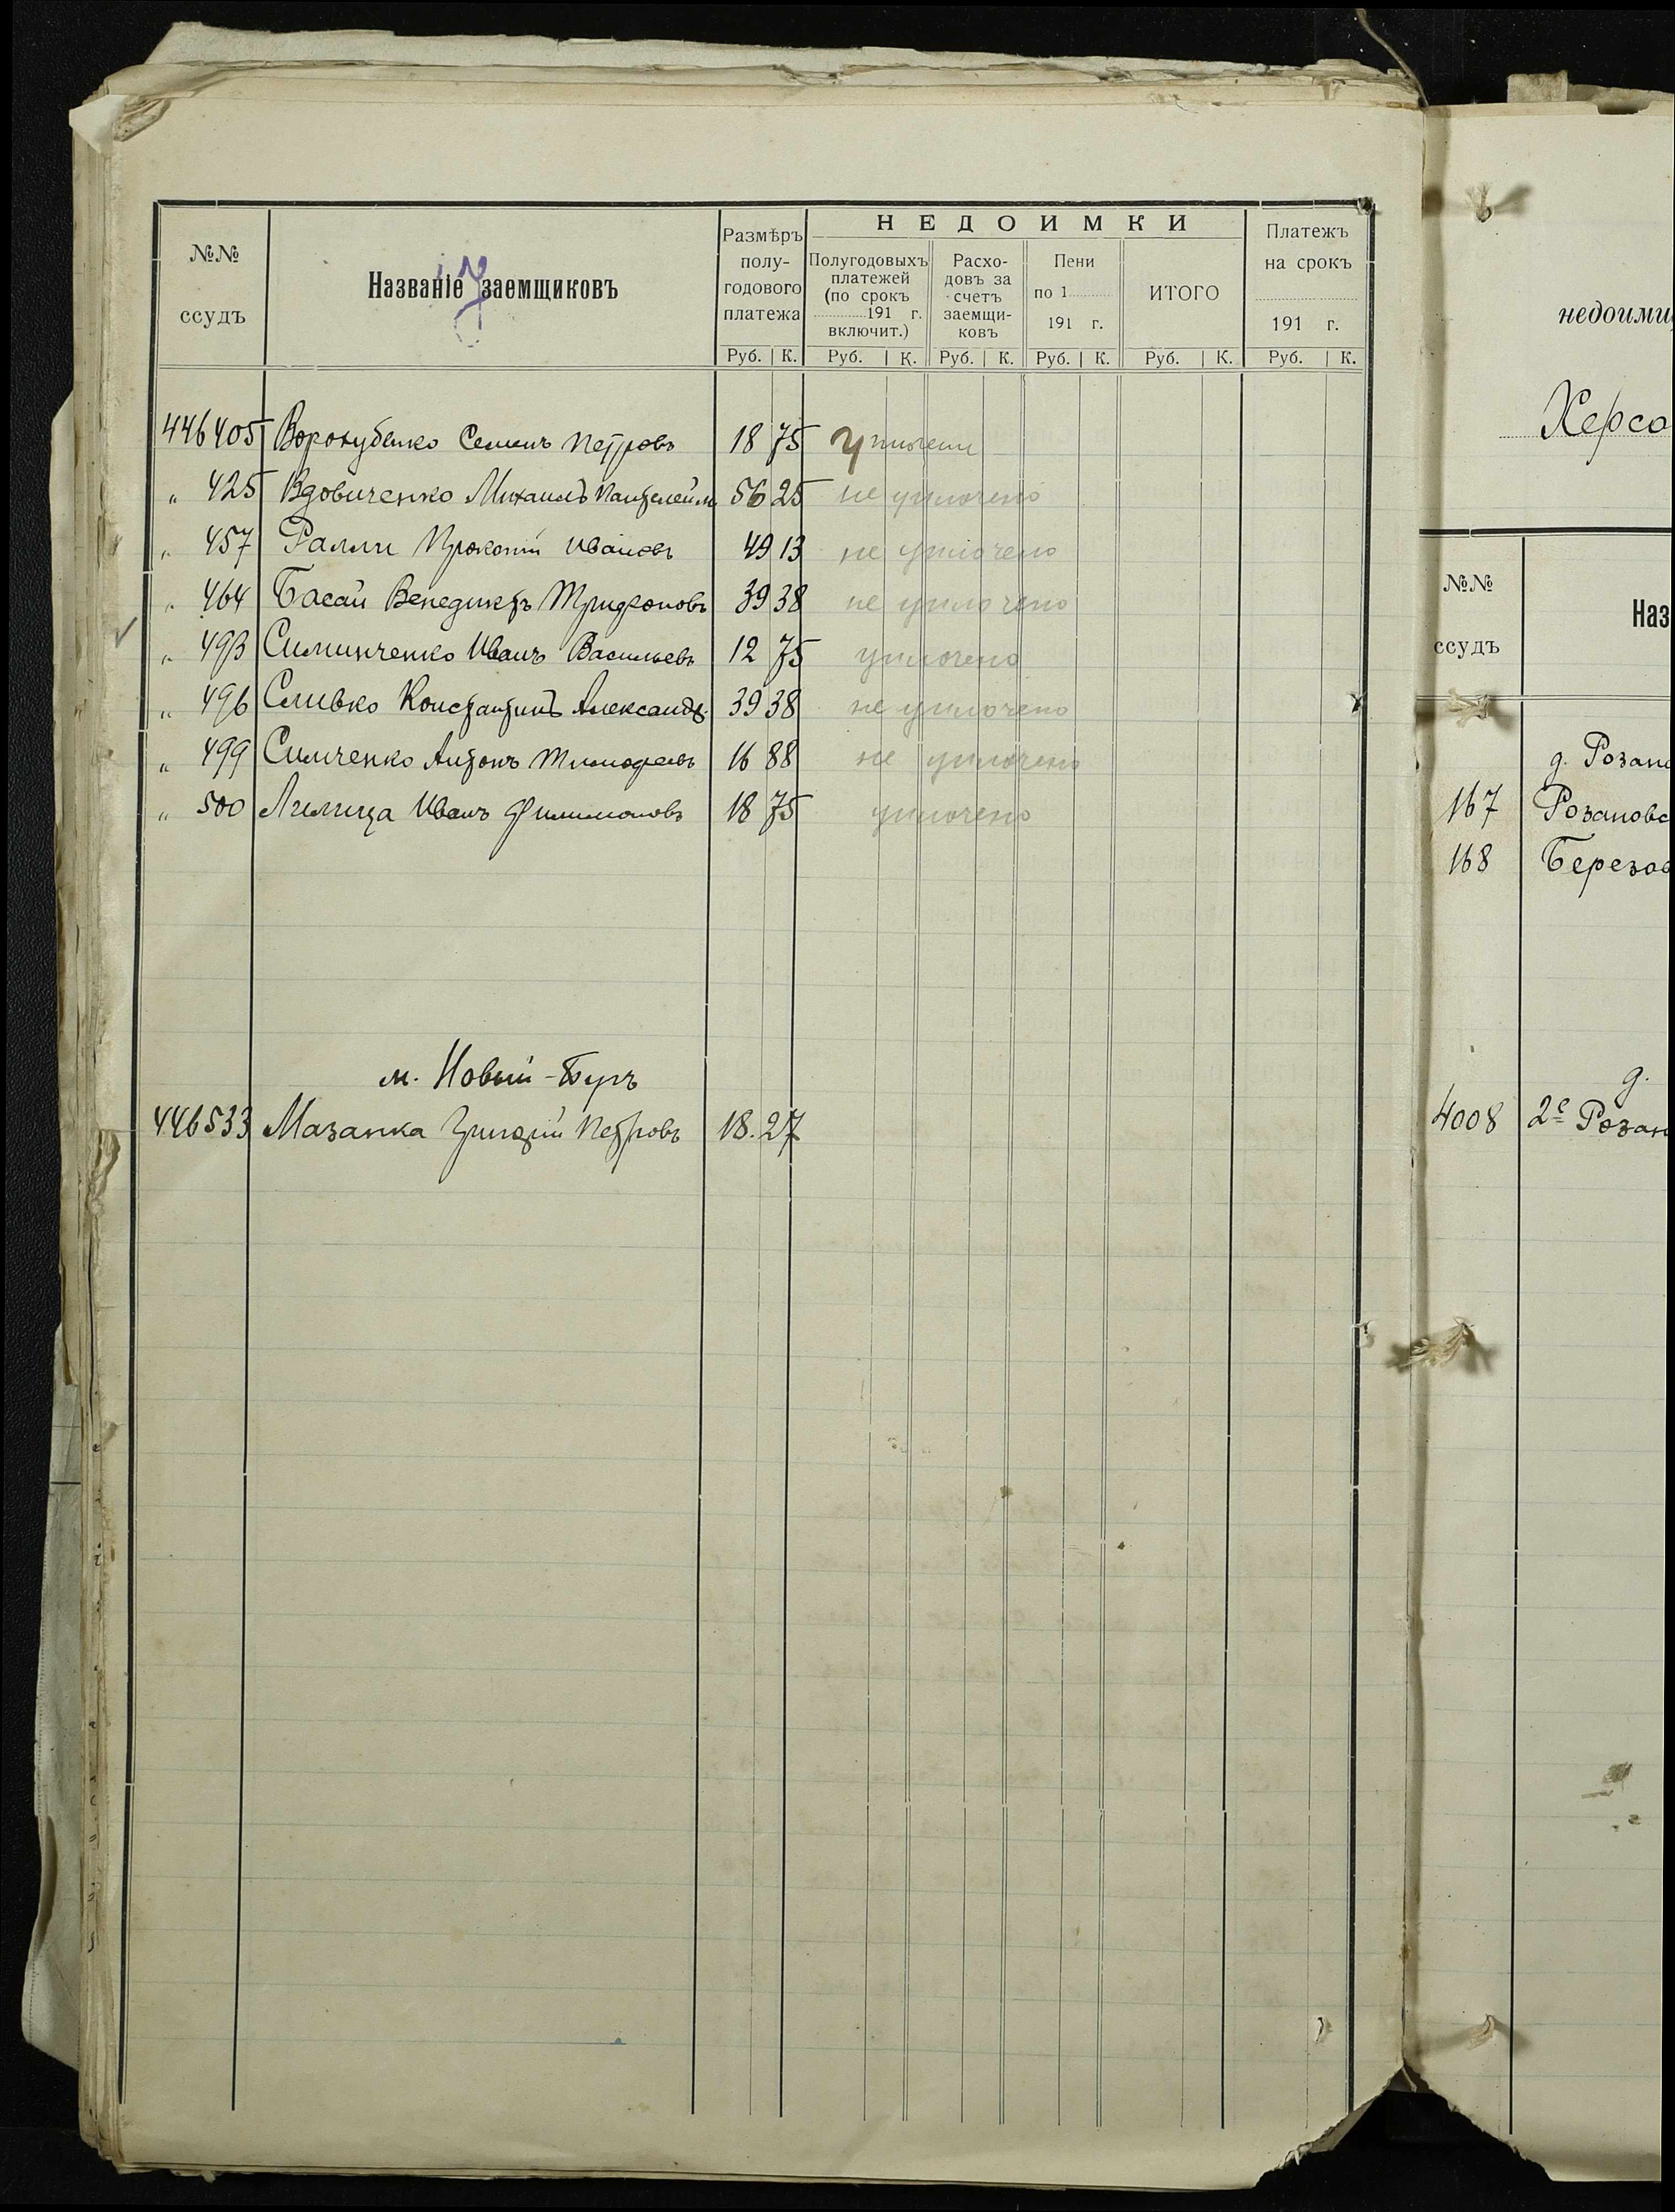 №№ ссудъ
Названіе заемщиковъ
Размѣръ полу-годового платежа
НЕДОИМКИ
Полугодовыхъ платежей (по срокъ 191 г. включит.)
Расхо-довъ за счетъ заемщи-ковъ
Пени по 1 191 г.
ИТОГО
Платежъ на срокъ 191 г.
Руб. К. Руб. К. Руб. К. Руб. К. Руб. К. Руб. К.
446405 Семенъ Петровъ 18 75
" 425 Вдовиченко Михаилъ Пантелейм. 56 25 не уплочено
" 457 Ралли Прокопій Ивановъ 49 13 не уплочено
" 464 Басай Венедиктъ Трифоновъ 39 38 не уплочено
" 493 Симинченко Иванъ Васильевъ 12 75 уплочено
" 496 Сливко Константинъ Александр. 39 38 не уплочено
" 499 Симченко Антонъ Тимофеевъ 16 88 не уплочено
" 500 Иванъ Филимоновъ 18 75 уплочено
м. Новый-Бугъ
446533 Мазанка Григорій Петровъ 18.27
недоими
Херсо
№№ ссудъ
Наз
д. Розано
167 Розановс
168 Березов
д.
4008 2е Розан